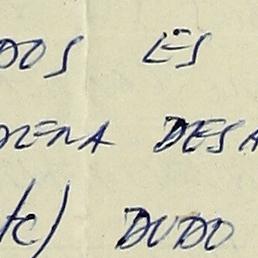 DOS ES
DENA DESA
tc) DUDO